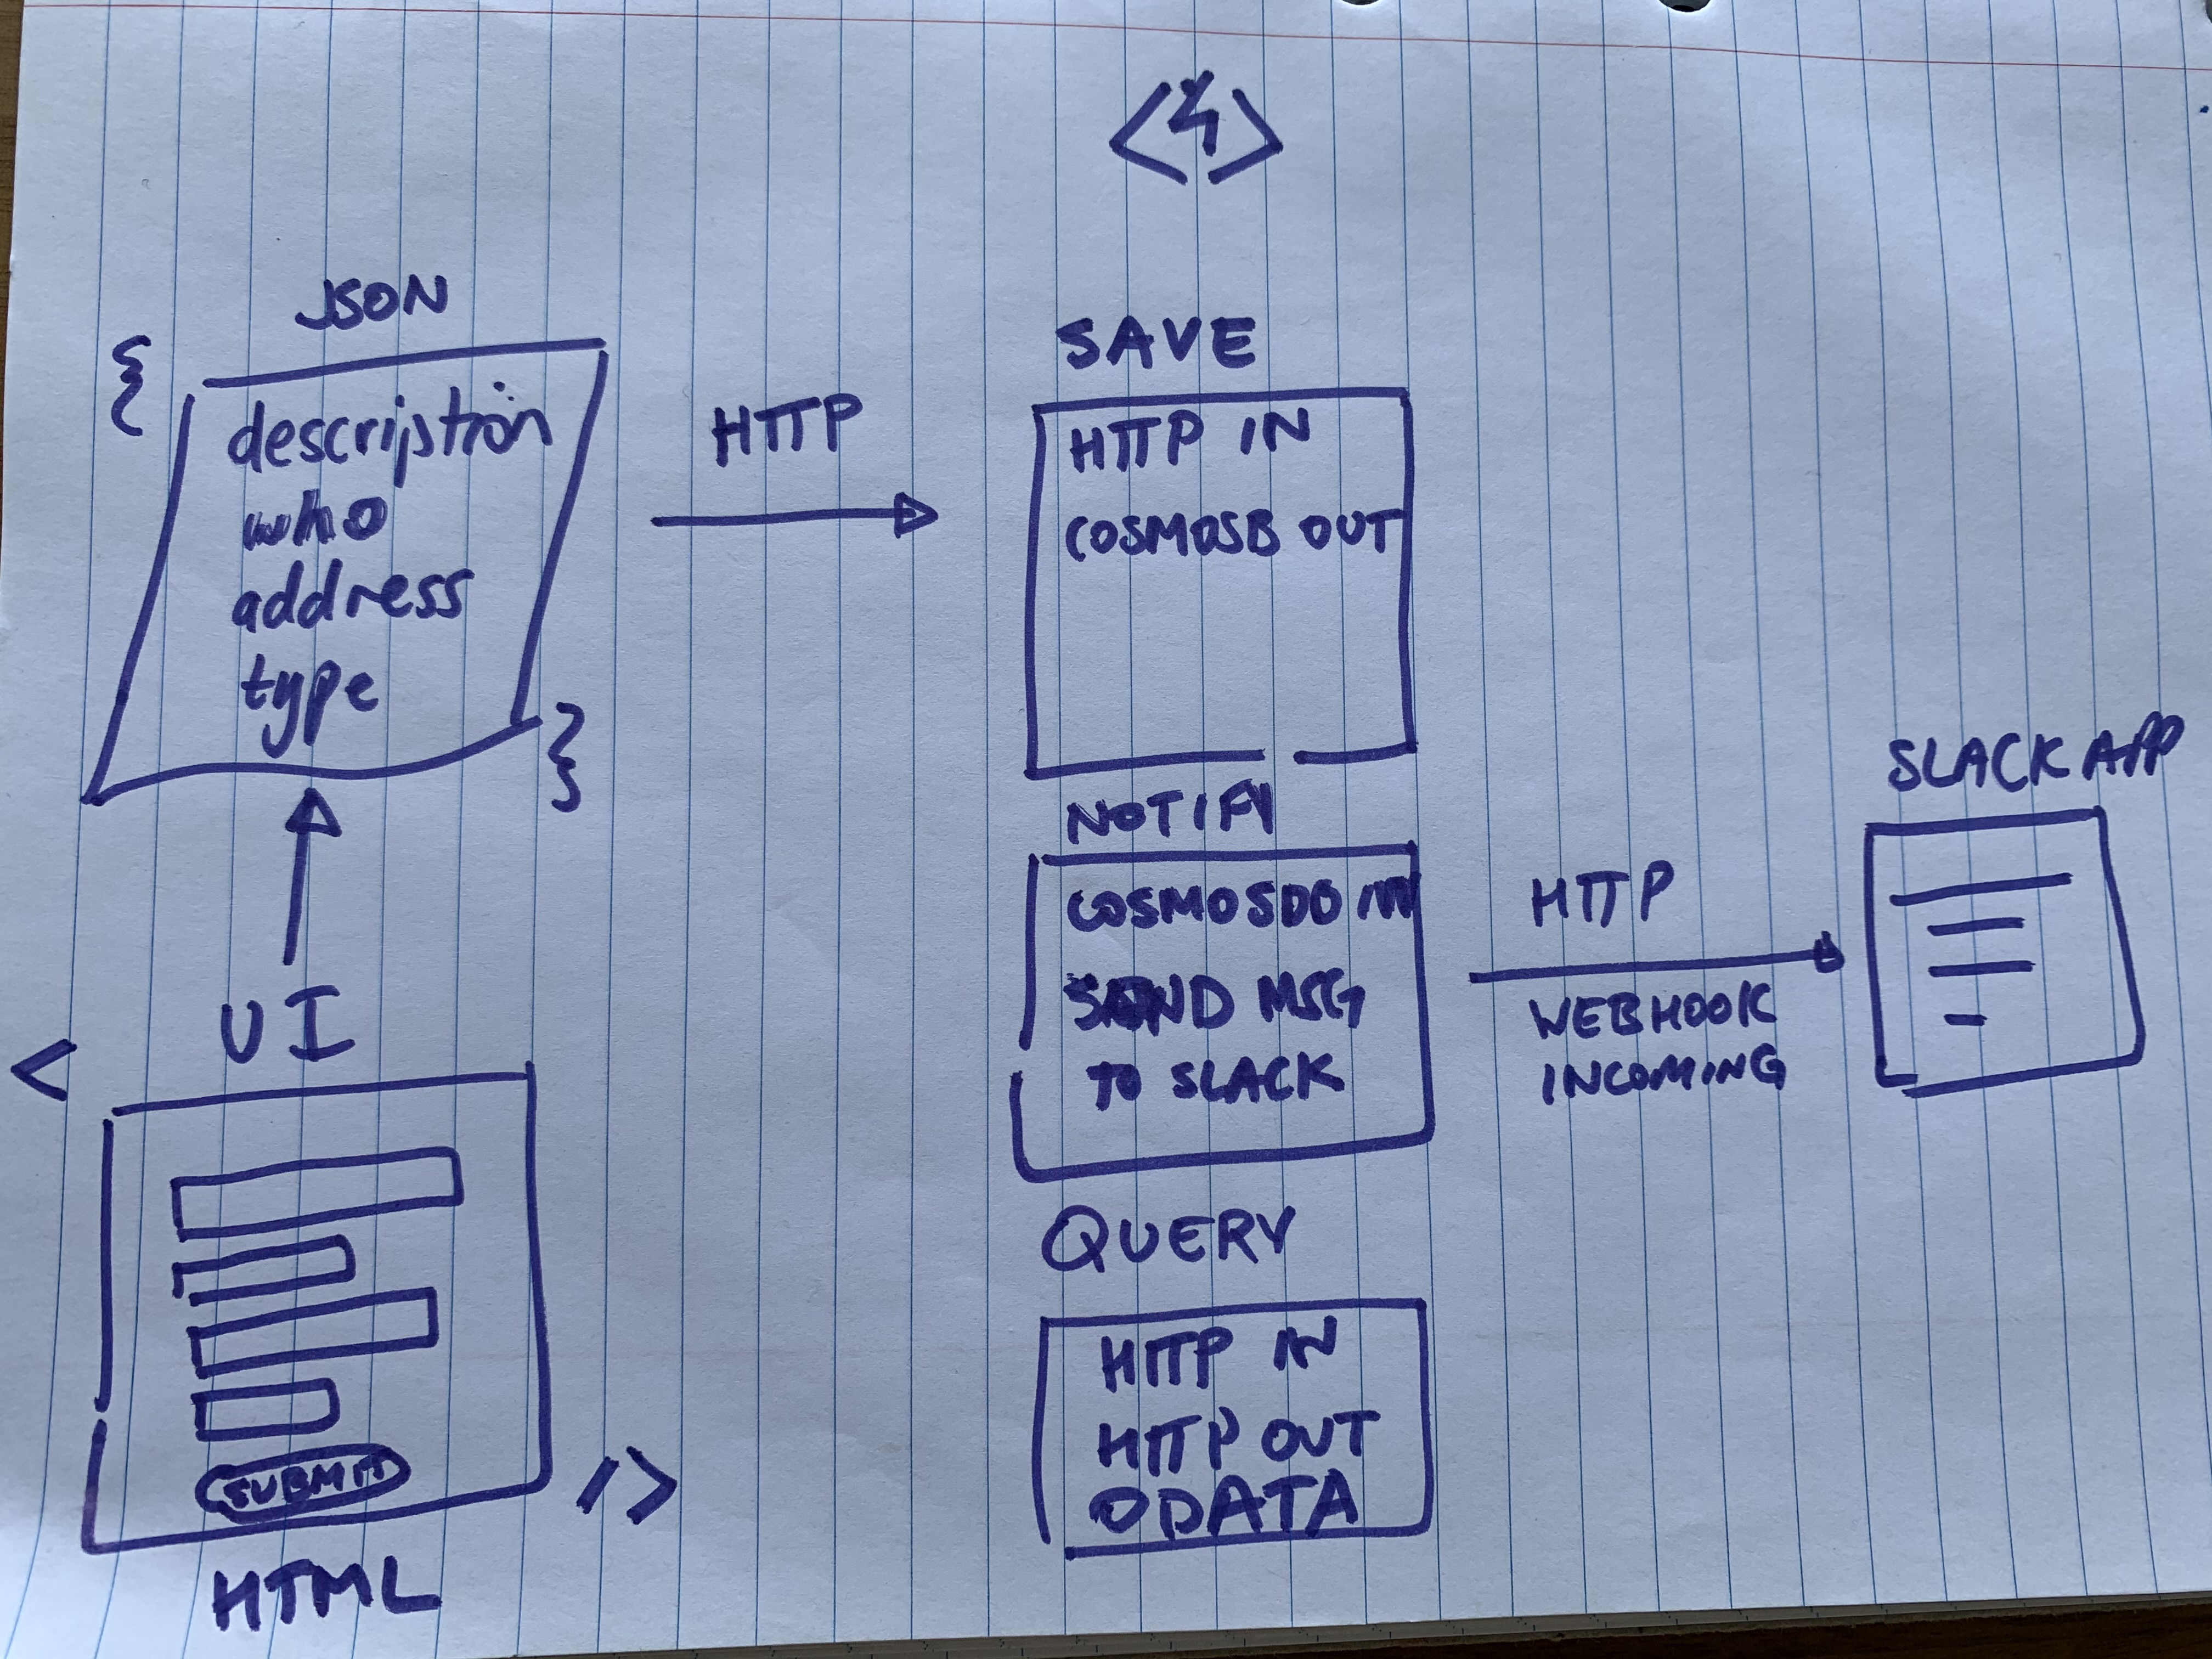 {
JSON
description
who
address
type
}
<
UI
SUBMIT
HTML
/>
HTTP
< >
SAVE
HTTP IN
COSMOSDB OUT
NOTIFY
COSMOSDB IN
SEND MSG
TO SLACK
QUERY
HTTP IN
HTTP OUT
ODATA
HTTP
WEBHOOK
INCOMING
SLACK APP